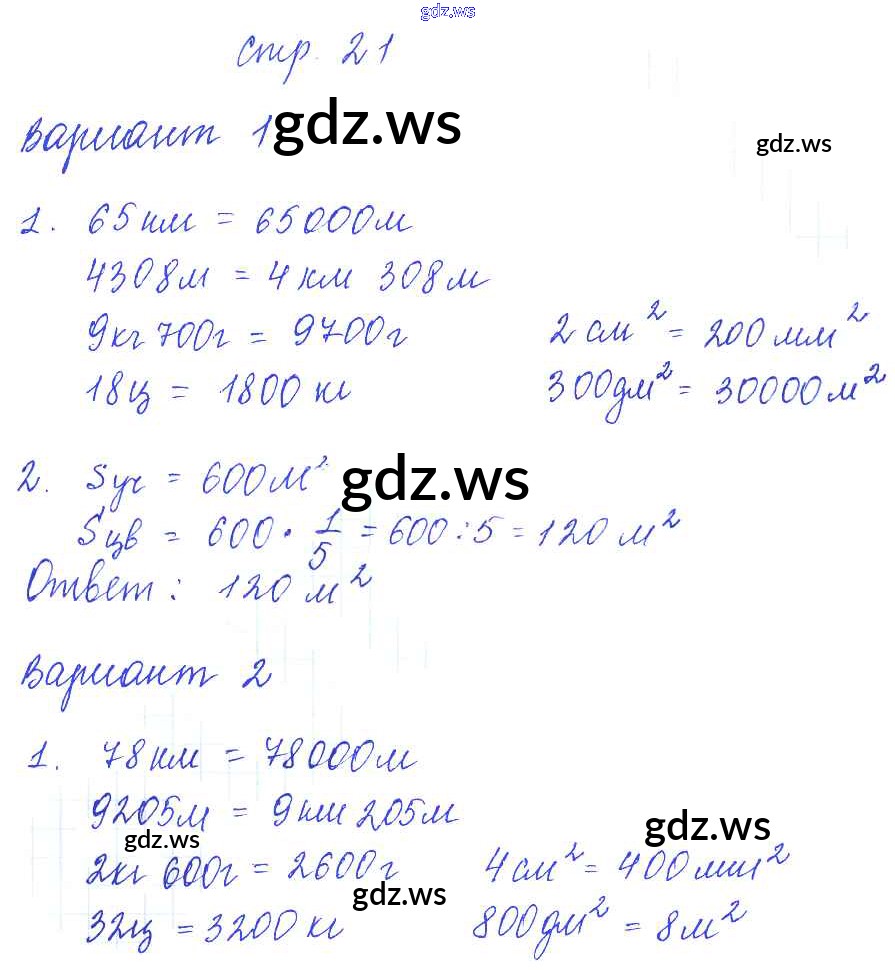 gdz.ws
стр. 21
Вариант 1 gdz.ws
gdz.ws
1. 65 км = 65000 м
4308 м = 4 км 308 м
9 кг 700 г = 9700 г
2 см² = 200 мм²
18 ц = 1800 кг
300 дм² = 30000 м²
2. Sуч = 600 м²
gdz.ws
Sцв = 600 · 1/5 = 600 : 5 = 120 м²
Ответ: 120 м²
Вариант 2
1. 78 км = 78000 м
9205 м = 9 км 205 м
gdz.ws
gdz.ws
2 кг 600 г = 2600 г
4 см² = 400 мм²
gdz.ws
32 ц = 3200 кг
800 дм² = 8 м²